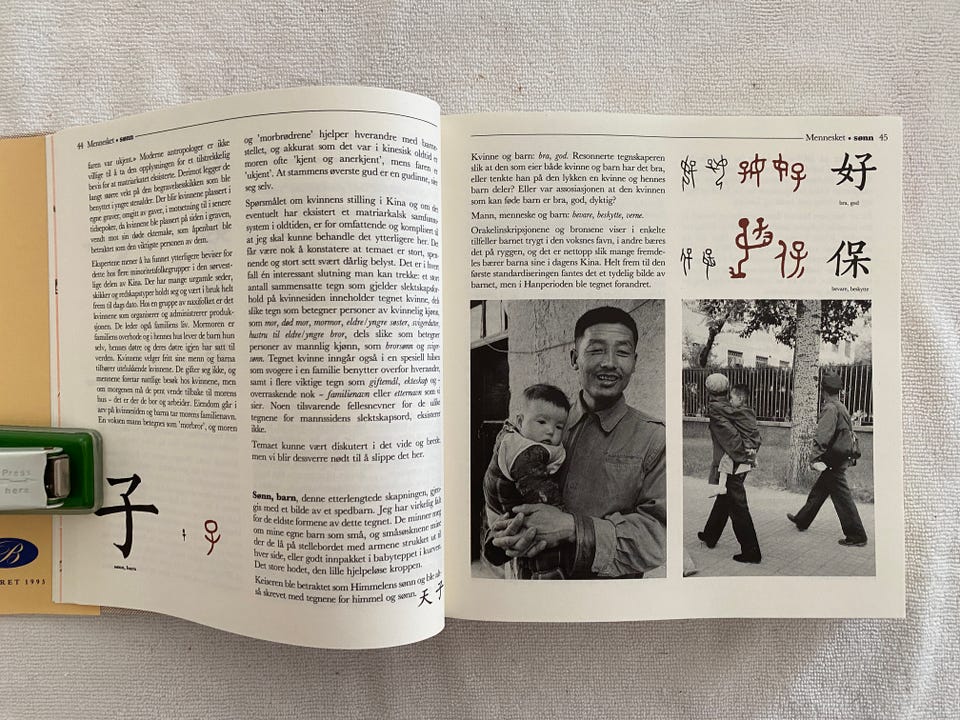 44 Mennesket • sønn
faren var ukjent.» Moderne antropologer er ikke
villige til å ta den opplysningen for et tilstrekkelig
bevis for at matriarkatet eksisterte. Derimot legger de
langt større vekt på den begravelsesskikken som ble
benyttet i yngre steinalder. Der blir kvinnene plassert i
egne graver, omgitt av gaver, i motsetning til i senere
tidsepoker, da kvinnene ble plassert på siden i graven,
vendt mot sin døde ektemake, som åpenbar ble
betraktet som den viktigste personen av dem.
Ekspertene mener å ha funnet ytterligere beviser for
dette hos flere minoritetsfolkegrupper i den sørvest-
lige delen av Kina. Der har mange urgamle seder,
skikker og redskapstyper holdt seg og vært i bruk helt
frem til dags dato. Hos en gruppe av naxifolket er det
kvinnene som organiserer og administrerer produk-
sjonen. De leder også familiens liv. Mormoren er
familiens overhode og i hennes hus lever de barn hun
selv, hennes døtre og deres døtre igjen har satt til
verden. Kvinnene velger fritt sine menn og barna
tilhører utelukkende kvinnene. De gifter seg ikke, og
mennene foretar nattlige besøk hos kvinnene, men
om morgenen må de pent vende tilbake til morens
hus – det er de bor og arbeider. Eiendom går i
arv på kvinnesiden og barna tar morens familienavn.
En voksen mann betegnes som 'morbror', og moren
子
sønn, barn
og 'morbrødrene' hjelper hverandre med barne-
stellet, og akkurat som det var i kinesisk oldtid er
moren ofte 'kjent og anerkjent', mens faren er
'ukjent'. At stammens øverste gud er en gudinne, sier
seg selv.
Spørsmålet om kvinnens stilling i Kina og om det
eventuelt har eksistert et matriarkalsk samfunns-
system i oldtiden, er for omfattende og komplisert til
at jeg skal kunne behandle det ytterligere her. Det
får være nok å konstatere at temaet er stort, spen-
nende og stort sett svært dårlig belyst. Det er i hvert
fall én interessant slutning man kan trekke: et stort
antall sammensatte tegn som gjelder slektskapsfor-
hold på kvinnesiden inneholder tegnet kvinne, dels
slike tegn som betegner personer av kvinnelig kjønn,
som mor, død mor, mormor, eldre/yngre søster, svigerdatter,
hustru til eldre/yngre bror, dels slike som betegner
personer av mannlig kjønn, som brorsønn og
sønn. Tegnet kvinne inngår også i en spesiell hilsen
som svogere i en familie benytter overfor hverandre,
samt i flere viktige tegn som giftemål, ekteskap og –
overraskende nok – familienavn eller etternavn som vi
sier. Noen tilsvarende fellesnevner for de ulike
tegnene for mannssidens slektskapsord, eksisterer
ikke.
Temaet kunne vært diskutert i det vide og brede,
men vi blir dessverre nødt til å slippe det her.
Sønn, barn, denne etterlengtede skapningen, gjen-
gis med et bilde av et spedbarn. Jeg har virkelig falt
for de eldste formene av dette tegnet. De minner meg
om mine egne barn som små, og småsøsknene mine
der de lå på stellebordet med armene strukket ut til
hver side, eller godt innpakket i babyteppet i kurven.
Det store hodet, den lille hjelpeløse kroppen.
Keiseren ble betraktet som Himmelens sønn og ble
så skrevet med tegnene for himmel og sønn. 天子
Press
here
B
RET 1995
Mennesket • sønn 45
Kvinne og barn: bra, god. Resonnerte tegnskaperen
slik at den som eier både kvinne og barn har det bra,
eller tenkte han på den lykken en kvinne og hennes
barn deler? Eller var assosiasjonen at den kvinnen
som kan føde barn er bra, god, dyktig?
Mann, menneske og barn: bevare, beskytte, verne.
Orakelinskripsjonene og bronsene viser i enkelte
tilfeller barnet trygt i den voksnes favn, i andre bæres
det på ryggen, og det er nettopp slik mange fremde-
les bærer barna sine i dagens Kina. Helt frem til den
første standardiseringen fantes det et tydelig bilde av
barnet, men i Hanperioden ble tegnet forandret.
好
bra, god
保
bevare, beskytte